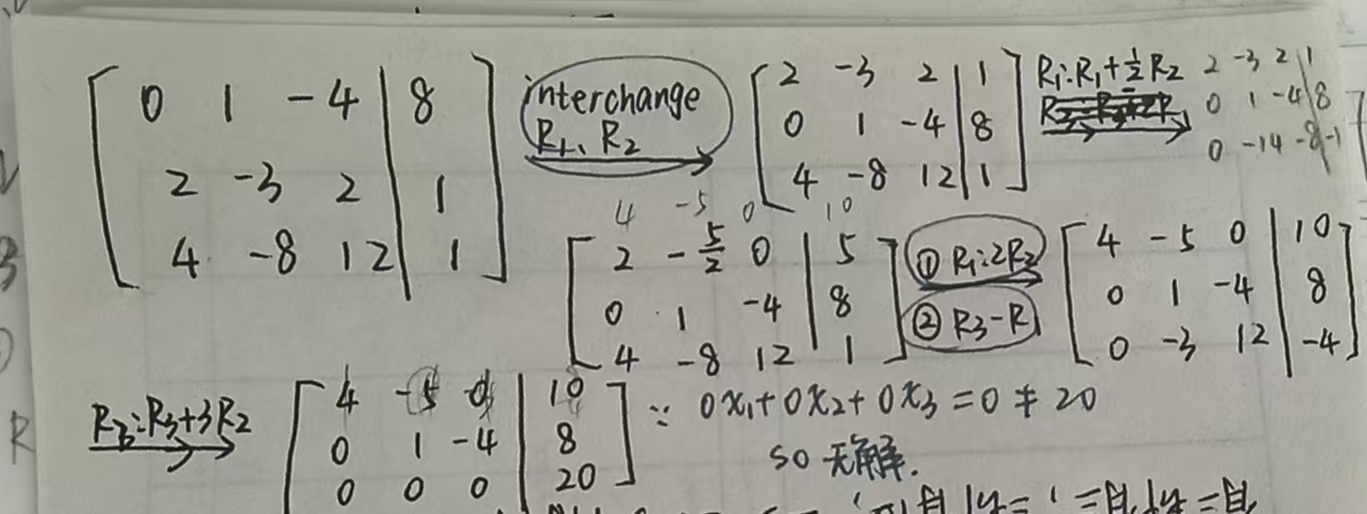 0 1 -4 | 8
2 -3 2 | 1
4 -8 12 | 1
interchange
R₁、R₂
2 -3 2 | 1
0 1 -4 | 8
4 -8 12 | 1
R₁:R₁+½R₂
2 -3 2 | 1
0 1 -4 | 8
0 -14 -8 | -1
4 -5 0 10
2 -5/2 0 | 5
0 1 -4 | 8
4 -8 12 | 1
① R₁:2R₂
② R₃-R₁
4 -5 0 | 10
0 1 -4 | 8
0 -3 12 | -4
R₃:R₃+3R₂
4 -5 0 | 10
0 1 -4 | 8
0 0 0 | 20
∵ 0x₁+0x₂+0x₃=0≠20
so 无解.